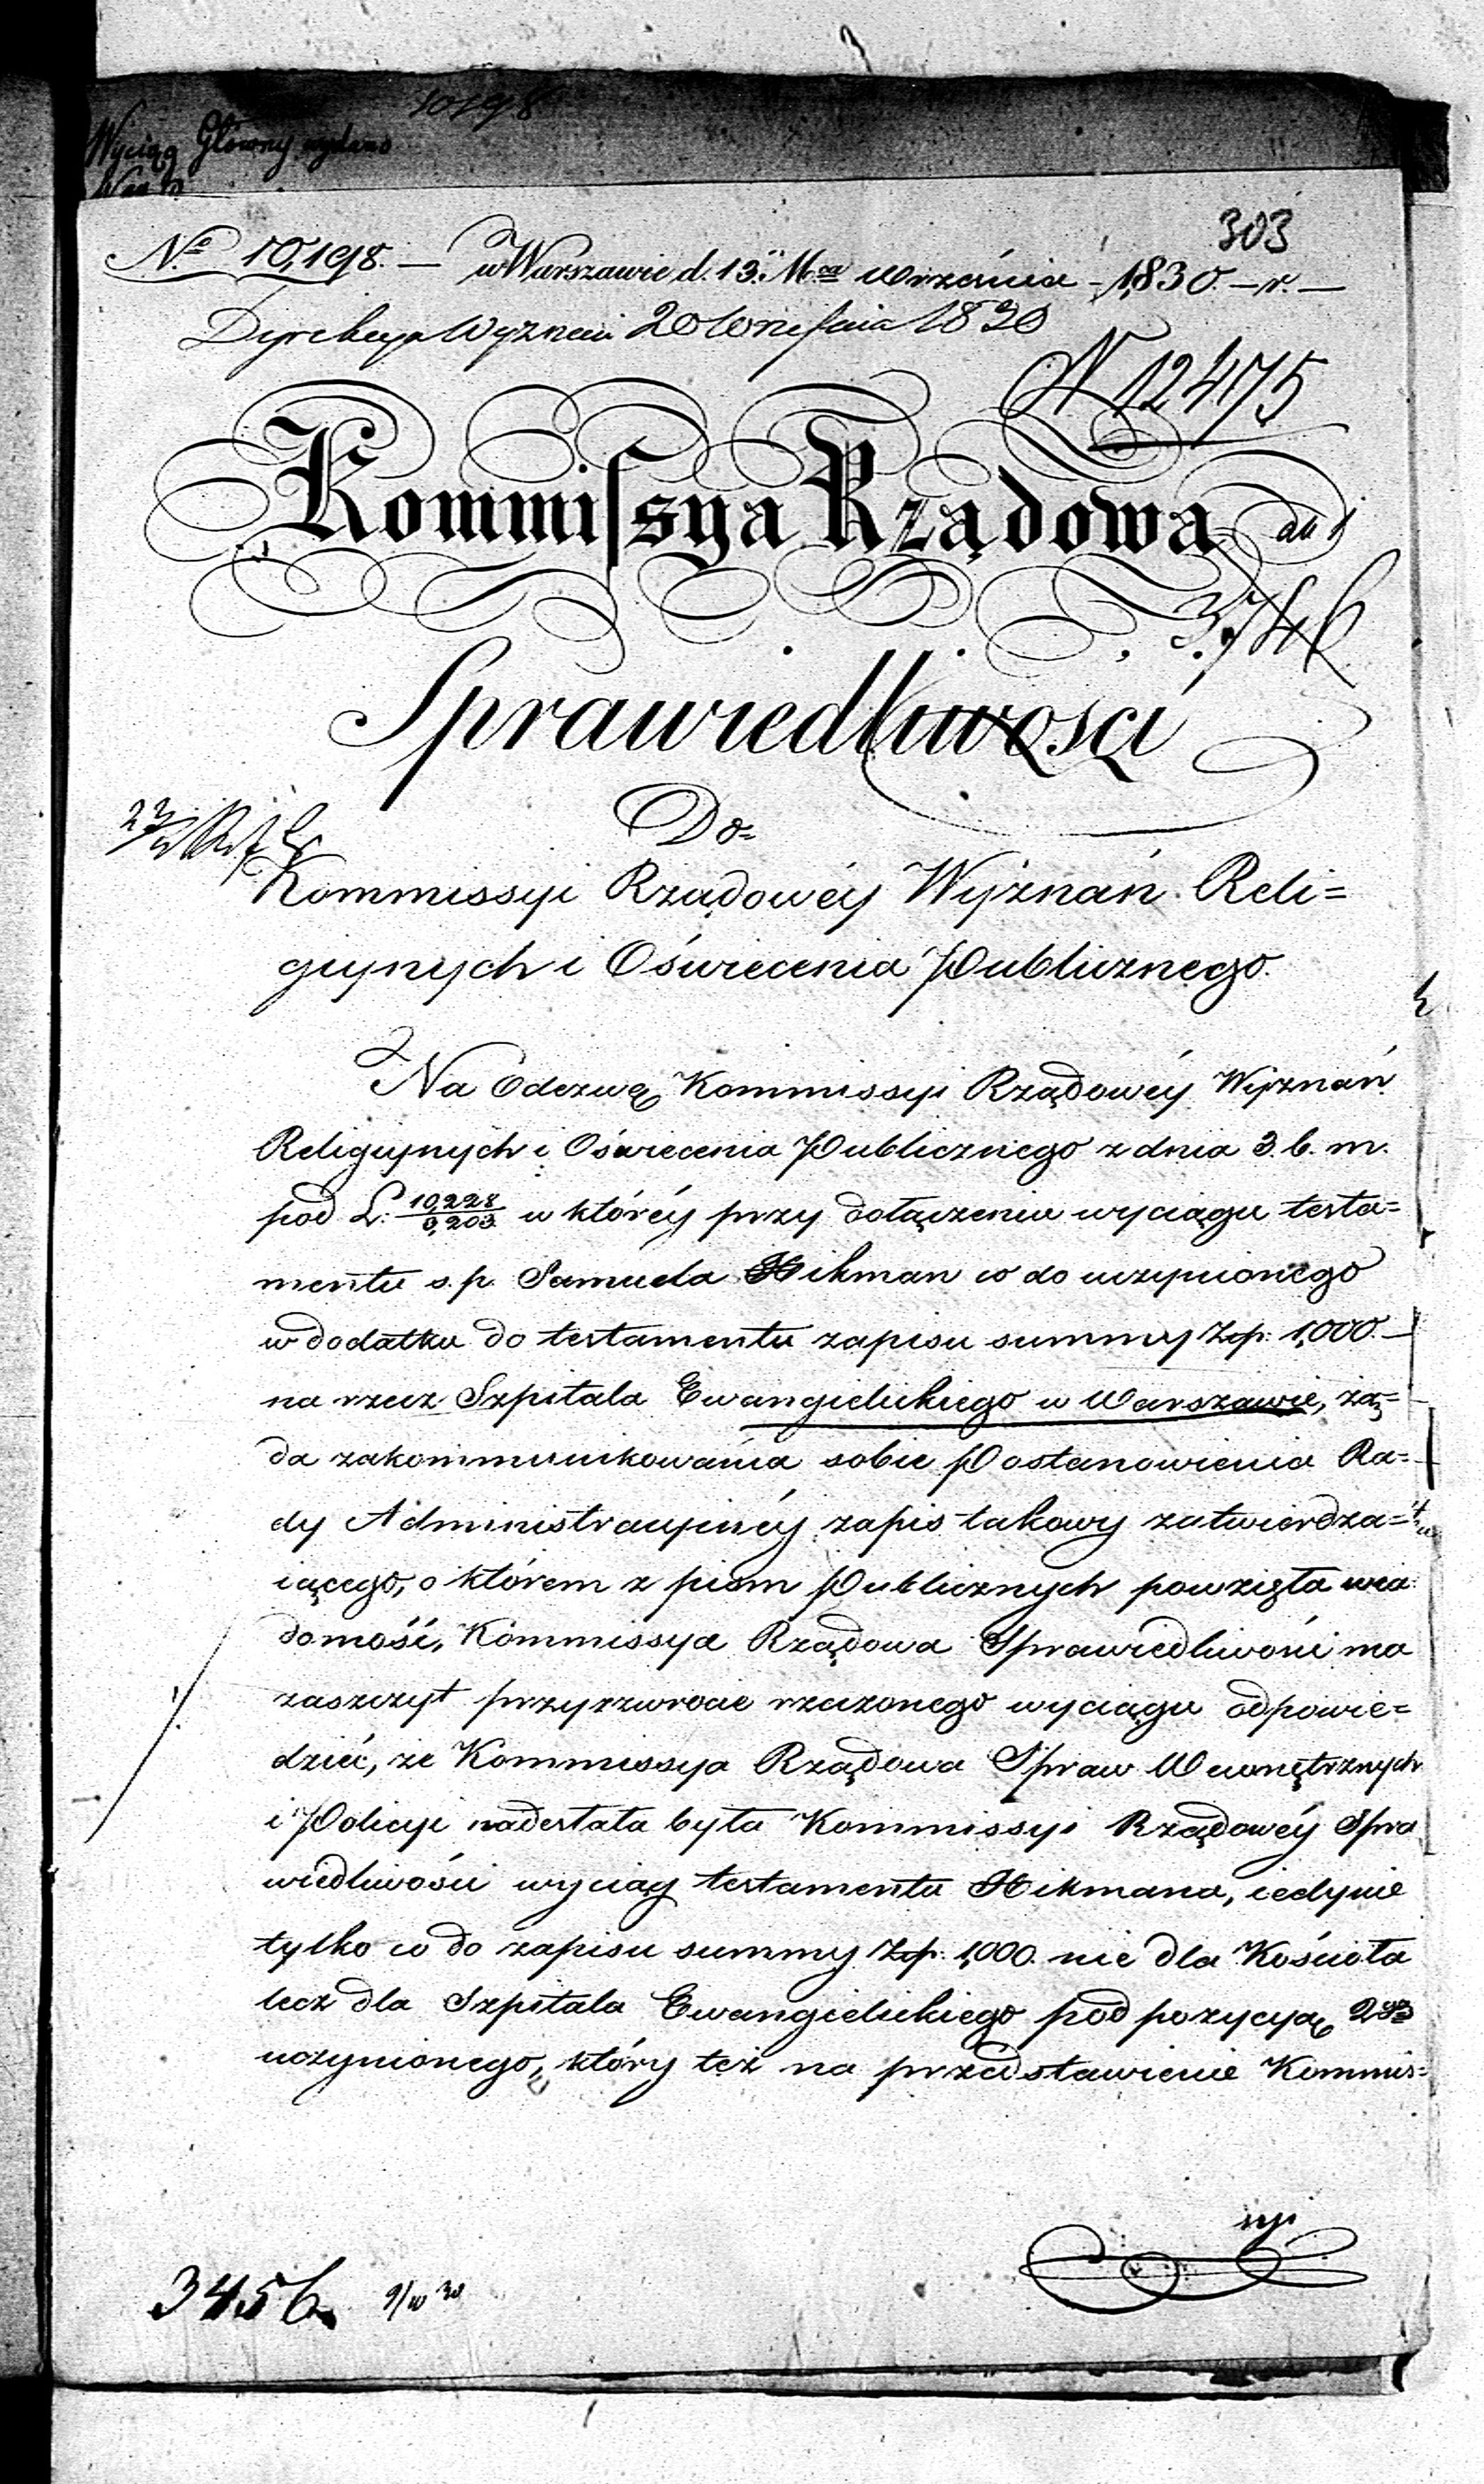 10198
Wyciąg Główny wydano
303
No 10,198. — w Warszawie d. 13. Mca Września 1830. — r. —
Dyrekcya Wyznań 20 Września 1830
N 12475
Kommissya Rządowa
ad 1
3746
Sprawiedliwości
Do
Kommissyi Rządowéy Wyznań Reli=
giynych i Oświecenia Publicznego.
Na Odezwę Kommissyi Rządowéy Wyznań
Religiynych i Oświecenia Publicznego z dnia 3. b. m.
pod L: 10,228/3,203 w któréy przy dołączeniu wyciągu testa=
mentu s. p. Samuela Hikman co do uczynionego
w dodatku do testamentu zapisu summy Złp: 1,000. —
na rzecz Szpitala Ewangielickiego w Warszawie, żą=
da zakommunikowania sobie Postanowienia Ra=
dy Administracyinéy zapis takowy zatwierdza=
iącego, o którem z pism Publicznych powzięła wia
domość, Kommissya Rządowa Sprawiedliwości ma
zaszczyt przy zwrocie rzeczonego wyciągu odpowie=
dzieć, że Kommissya Rządowa Spraw Wewnętrznych
i Policyi nadesłała była Kommissyi Rządowéy Spra
wiedliwości wyciąg testamentu Hikmana, iedynie
tylko co do zapisu summy Złp: 1,000. nie dla Kościoła
lecz dla Szpitala Ewangielickiego pod pozycyą 2gą
uczynionego, który też na przedstawienie Kommis=
syi
3456 9/10 30